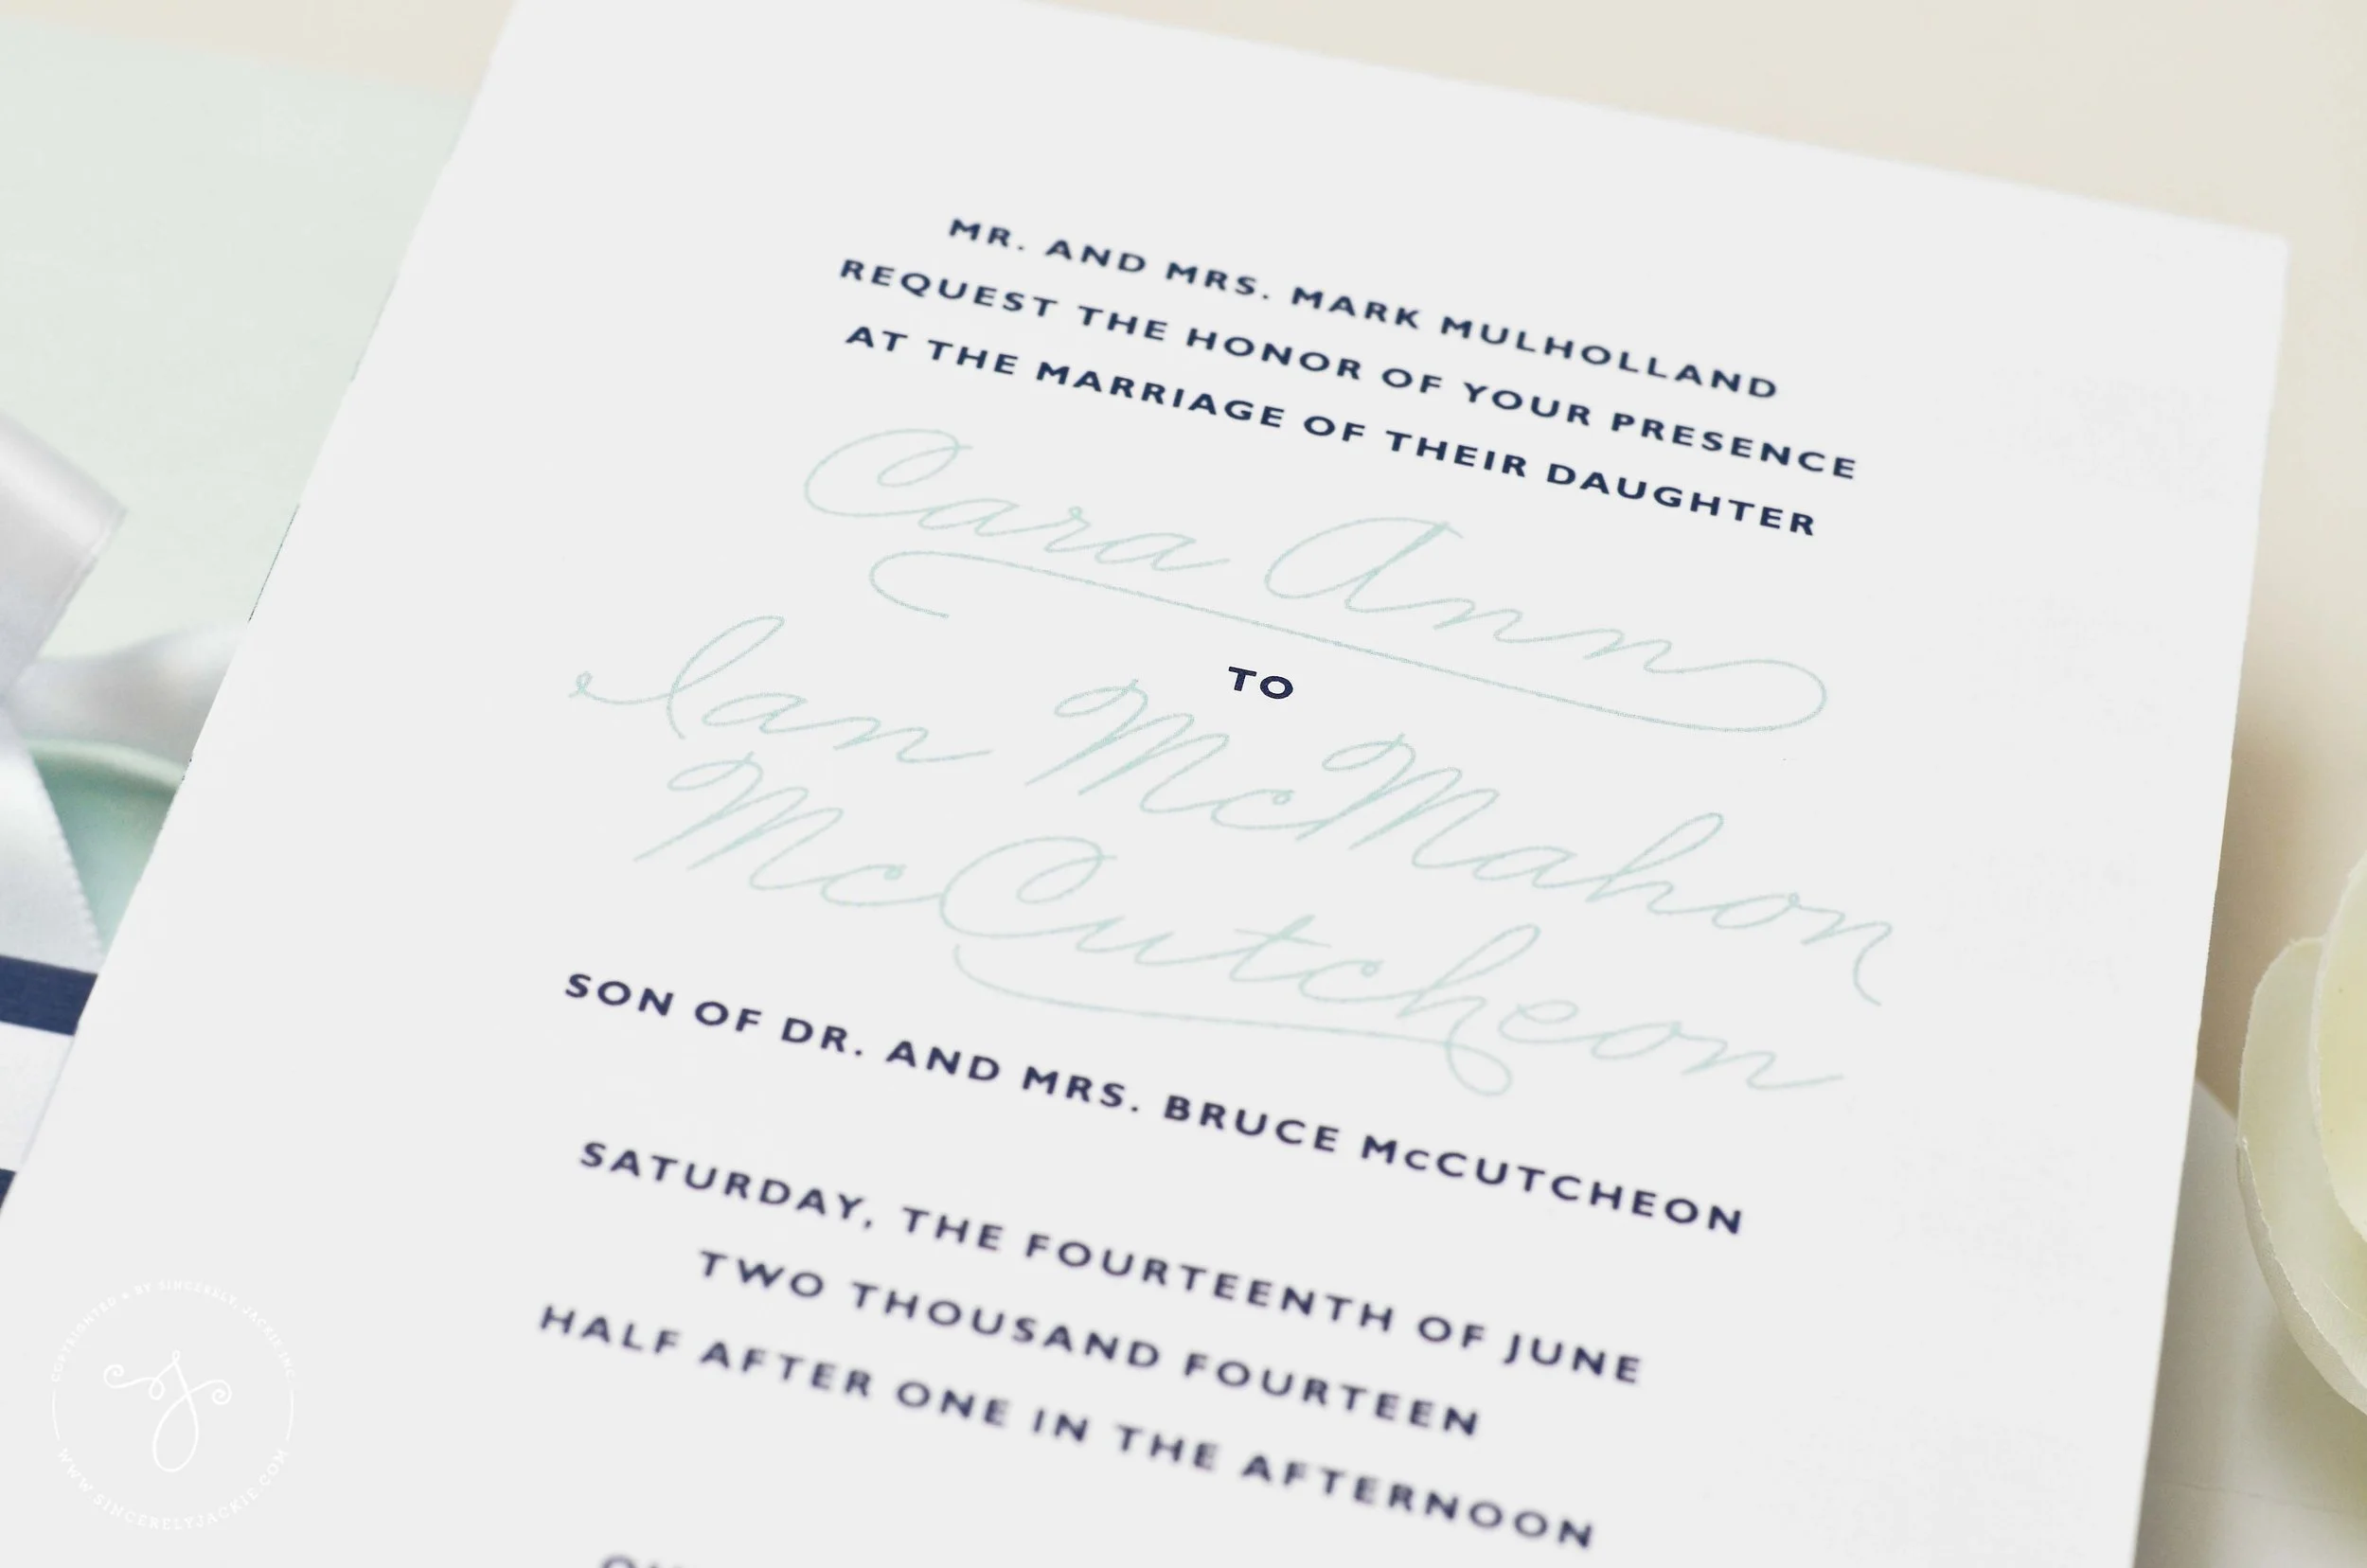 MR. AND MRS. MARK MULHOLLAND
REQUEST THE HONOR OF YOUR PRESENCE
AT THE MARRIAGE OF THEIR DAUGHTER
Cara Ann
TO
Ian McMahon
McCutcheon
SON OF DR. AND MRS. BRUCE McCUTCHEON
SATURDAY, THE FOURTEENTH OF JUNE
TWO THOUSAND FOURTEEN
HALF AFTER ONE IN THE AFTERNOON
COPYRIGHTED • BY SINCERELY, JACKIE INC.
WWW.SINCERELYJACKIE.COM